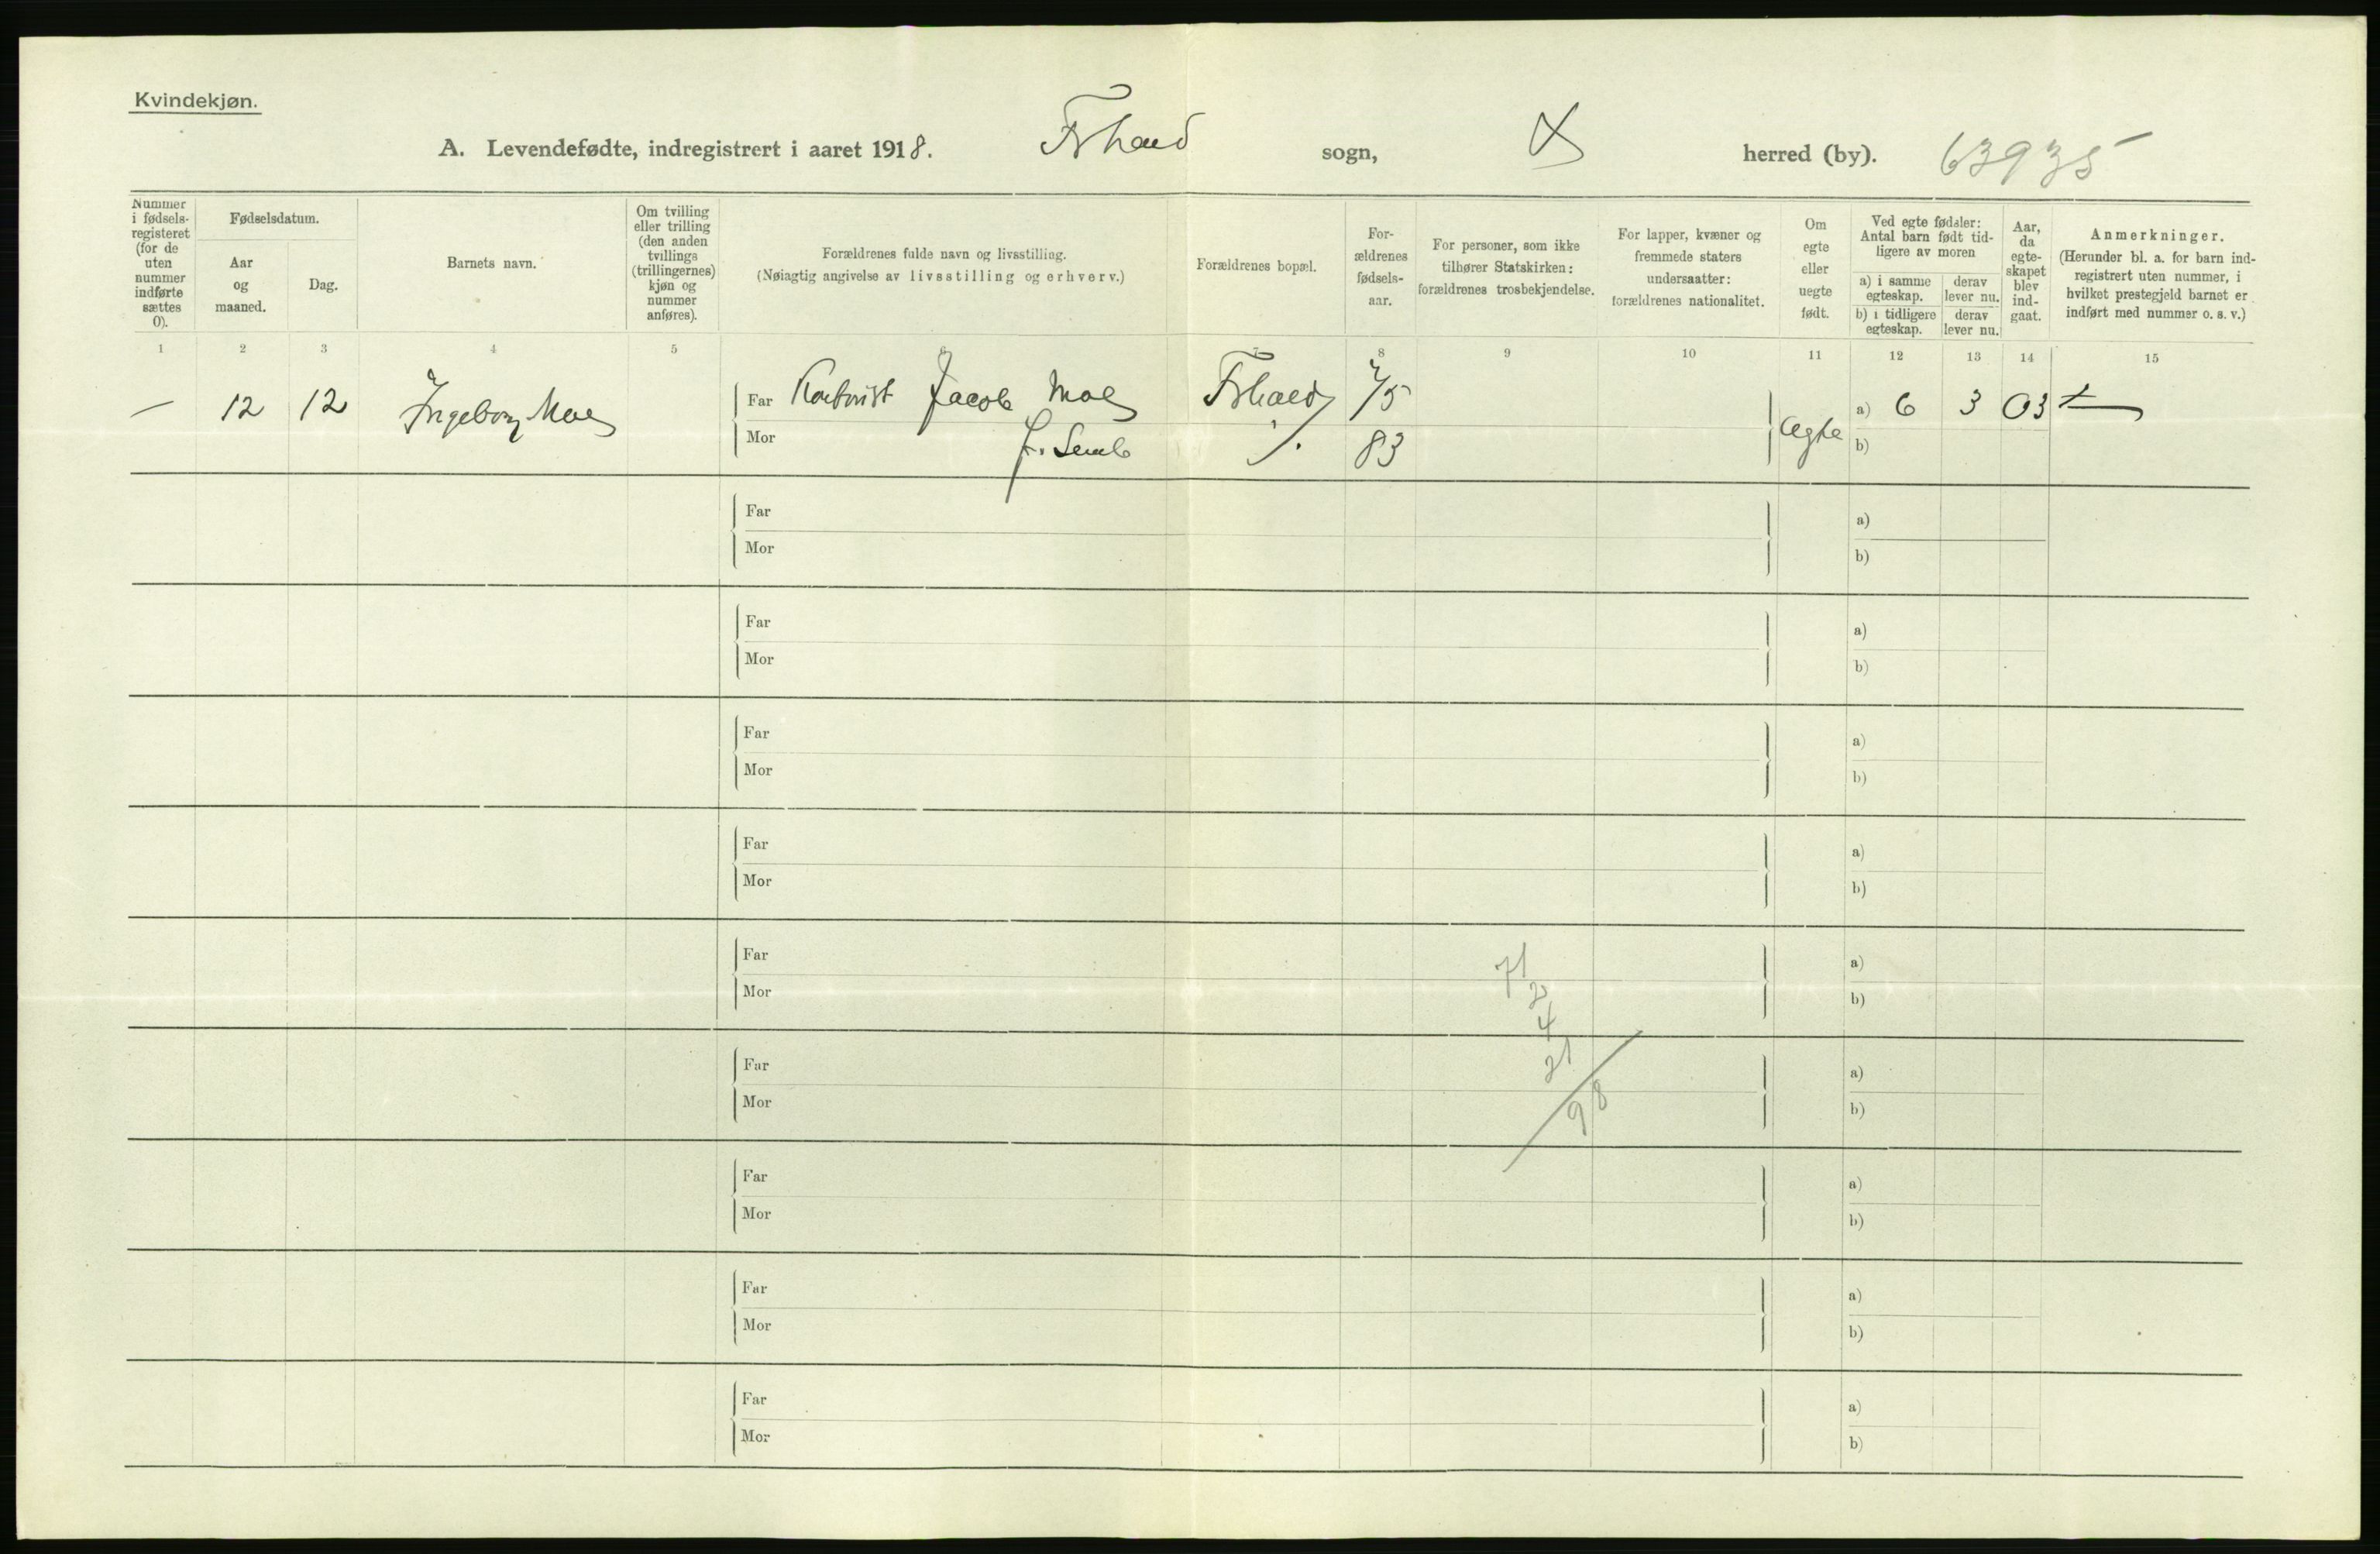 Kvindekjøn.
A. Levendefødte, indregistrert i aaret 1918. Frhald sogn, herred (by). 63935
Nummer i fødsels-registeret (for de uten nummer indførte sættes 0).
Fødselsdatum.
Aar og maaned.
Dag.
Barnets navn.
Om tvilling eller trilling (den anden tvillings (trillingernes) kjøn og nummer anføres).
Forældrenes fulde navn og livsstilling.
(Nøiagtig angivelse av livsstilling og erhverv.)
Forældrenes bopæl.
For-ældrenes fødsels-aar.
For personer, som ikke tilhører Statskirken: forældrenes trosbekjendelse.
For lapper, kvæner og fremmede staters undersaatter: forældrenes nationalitet.
Om egte eller uegte født.
Ved egte fødsler: Antal barn født tid-ligere av moren
a) i samme egteskap.
derav lever nu.
b) i tidligere egteskap.
derav lever nu.
Aar, da egte-skapet blev ind-gaat.
Anmerkninger.
(Herunder bl. a. for barn ind-registrert uten nummer, i hvilket prestegjeld barnet er indført med nummer o. s. v.)
1 2 3 4 5 6 7 8 9 10 11 12 13 14 15
— 12 12 Ingeborg Moe Far Jacob Moe Frhald 75 Egte a) 6 3 03 +
Mor f. Semb 83 b)
Far a)
Mor b)
Far a)
Mor b)
Far a)
Mor b)
Far a)
Mor b)
Far 71 a)
Mor 2 b)
4
Far 21 a)
Mor 98 b)
Far a)
Mor b)
Far a)
Mor b)
Far a)
Mor b)